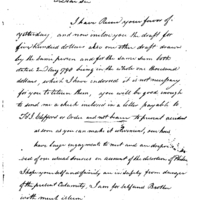 I have Recd your favor of
yesterday, and now inclose you the draft for
five Hundred dollars also one other draft drawn
by the same person and for the same sum both
dated 2nd May 1798 being in the whole one thousand
dollars, which I have endorsed it is not necessary
for you to return them, you will be good enough to
send me a check enclosed in a letter payable to
or order and not bearer to prevent accident
as soon as you can make it convenient, we have
have large engagements to meet and are
of our usual Sources on account of the desertion of
I hope yourself and family are in safety from danger
of the present Calamity. I am for self and Brother
with much esteem